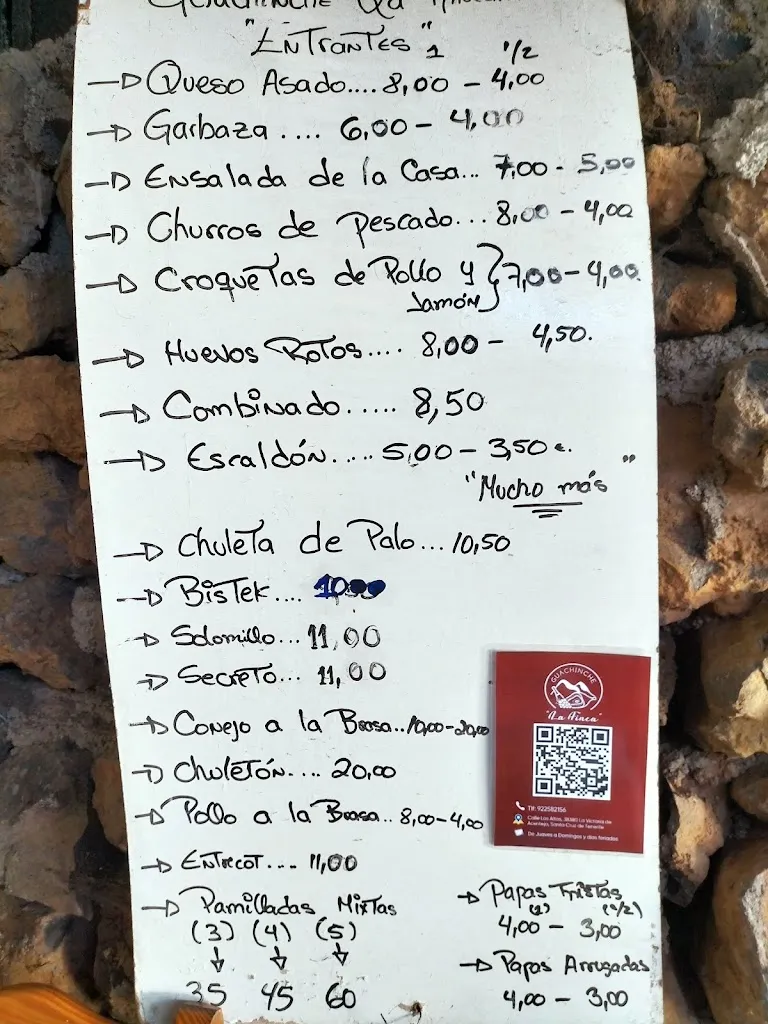 Guachinche La
"Entrantes" 1 1/2
Queso Asado.... 8,00 - 4,00
Garbaza .... 6,00 - 4,00
Ensalada de la Casa... 7,00 - 5,00
Churros de Pescado... 8,00 - 4,00
Croquetas de Pollo y Jamón } 7,00 - 4,00
Huevos Rotos.... 8,00 - 4,50.
Combinado..... 8,50
Escaldón..... 5,00 - 3,50 €.
"Mucho más"
Chuleta de Palo... 10,50
Bistek....
Solomillo... 11,00
Secreto... 11,00
Conejo a la Brasa.. 10,00 - 20,00
Chuletón.... 20,00
Pollo a la Brasa.. 8,00 - 4,00
Entrecot... 11,00
Parrilladas Mixtas
(3) (4) (5)
35 45 60
Papas Fristas
(1) (1/2)
4,00 - 3,00
Papas Arrugadas
4,00 - 3,00
GUACHINCHE
"La Finca"
Tlf: 922582156
Calle Los Altos, 38380 La Victoria de
Acentejo, Santa Cruz de Tenerife
De Jueves a Domingos y días feriados